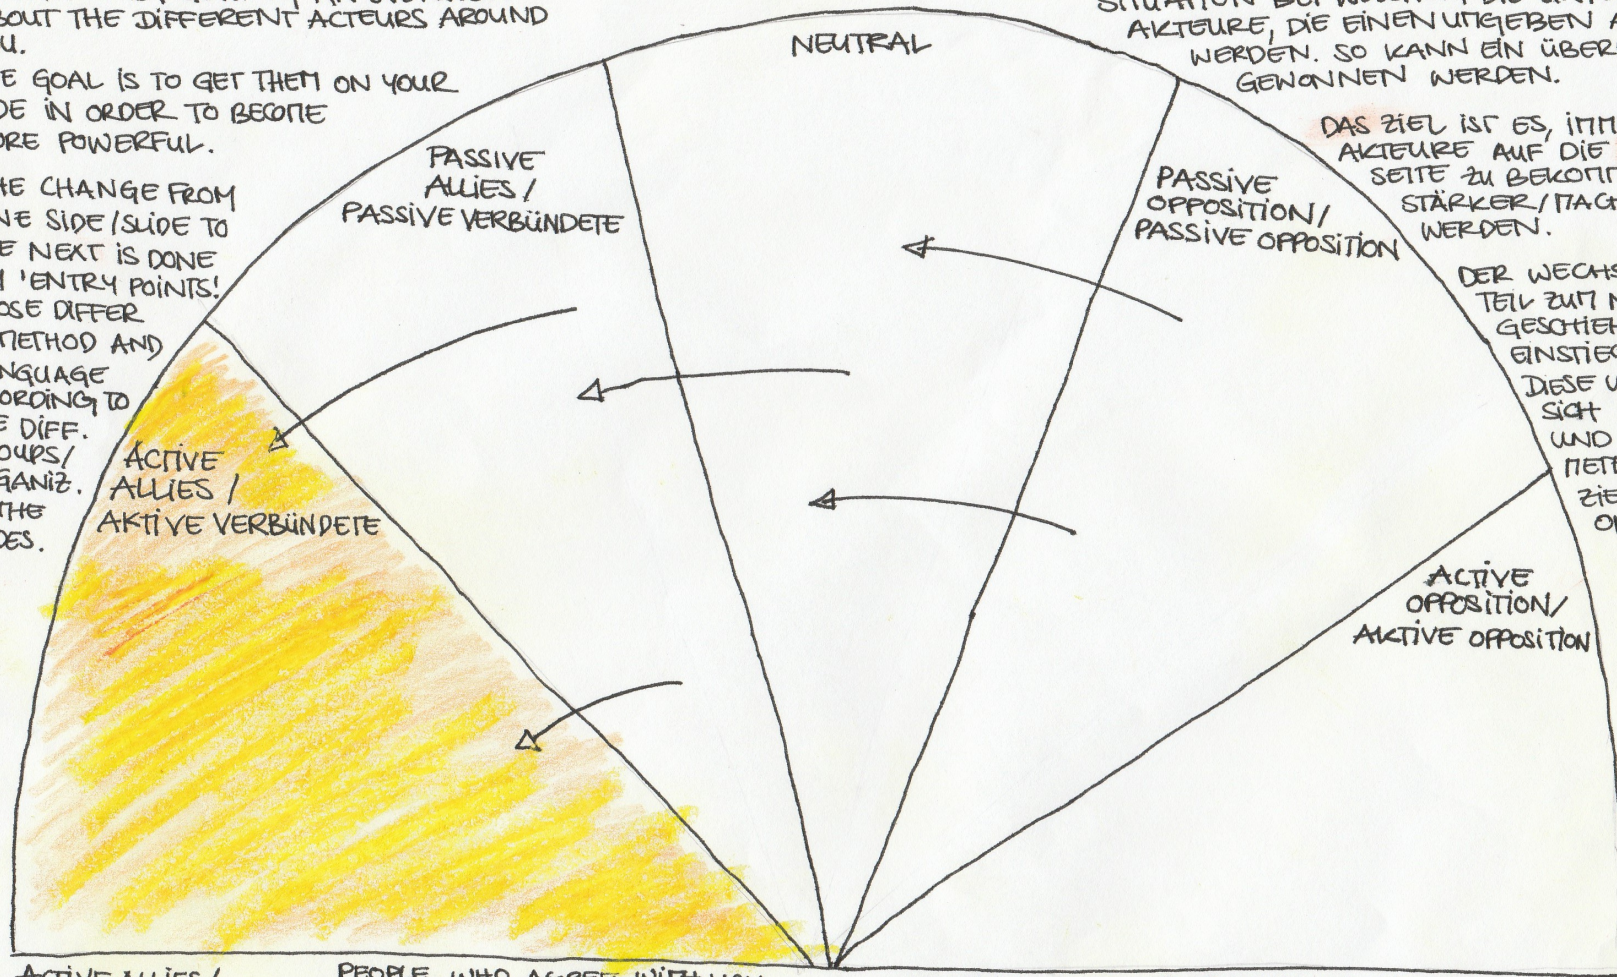 BOUT THE DIFFERENT ACTEURS AROUND
U.
E GOAL IS TO GET THEM ON YOUR
DE IN ORDER TO BECOME
ORE POWERFUL.
HE CHANGE FROM
NE SIDE/SLIDE TO
E NEXT IS DONE
'ENTRY POINTS!
OSE DIFFER
METHOD AND
NGUAGE
ORDING TO
E DIFF.
OUPS/
GANIZ.
THE
DES.
NEUTRAL
PASSIVE
ALLIES/
PASSIVE VERBÜNDETE
PASSIVE
OPPOSITION/
PASSIVE OPPOSITION
ACTIVE
ALLIES/
AKTIVE VERBÜNDETE
ACTIVE
OPPOSITION/
AKTIVE OPPOSITION
AKTEURE, DIE EINEN UMGEBEN A
WERDEN. SO KANN EIN ÜBER
GEWONNEN WERDEN.
DAS ZIEL IST ES, IMM
AKTEURE AUF DIE
SEITE ZU BEKOMM
STÄRKER/MAC
WERDEN.
DER WECHS
TEIL ZUM N
GESCHIEH
EINSTIEG
DIESE U
SICH
UND
METH
ZIE
OR
ACTIVE ALLIES/
PEOPLE WHO AGREE WITH YOU